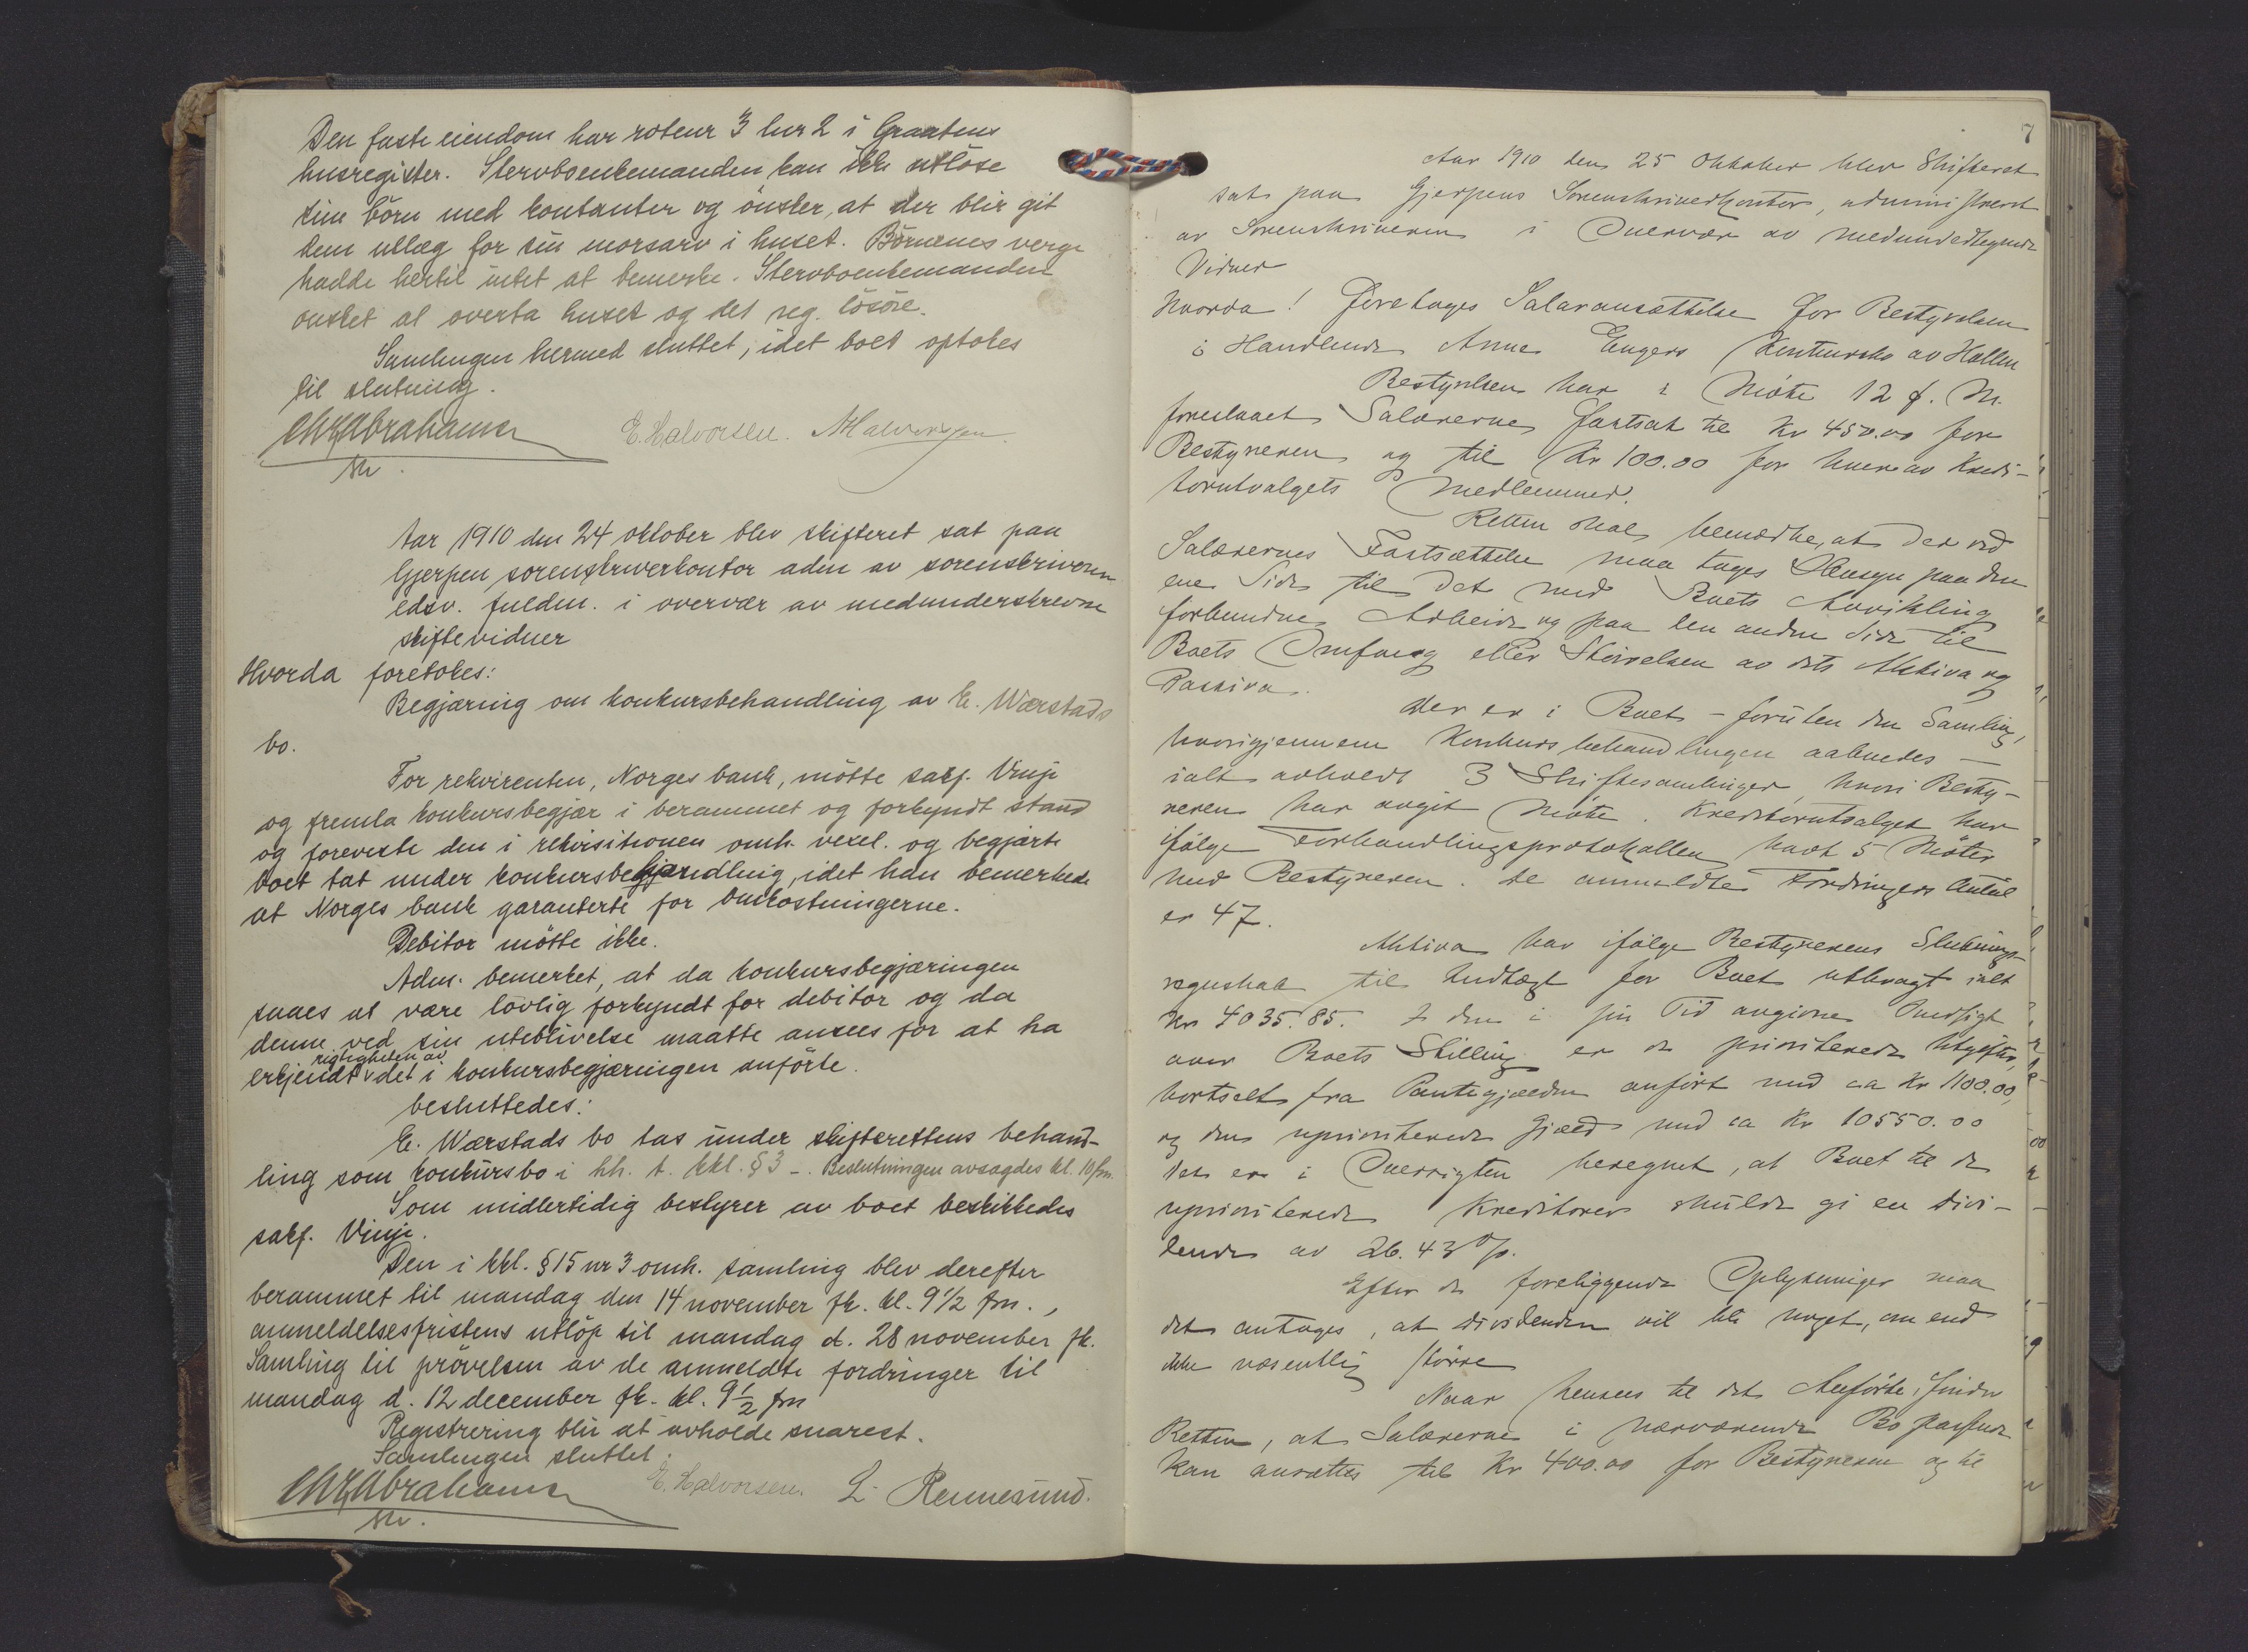 Den faste eiendom har rotenr 3 lnr 2 i Graatens
husregister. Stervboenkemanden kan ikke utløse
sine børn med kontanter og ønsker, at der blir git
dem utlæg for sin morsarv i huset. Børnenes verge
hadde hertil intet at bemerke. Stervboenkemanden
ønsket at overta huset og det reg. løsøre.
Samlingen hermed sluttet, idet boet optokes
til slutning.
Chr Abrahamsen E. Halvorsen. Halvorsen.
Aar 1910 den 24 oktober blev skifteret sat paa
Gjerpen sorenskriverkontor adm av sorenskriveren
edsv. fuldm. i overvær av medunderskrevne
skiftevidner
Hvorda foretokes:
Begjæring om konkursbehandling av E. Wærstads
bo.
For rekvirenten, Norges bank, møtte sakf. Vinje
og fremla konkursbegjær i berammet og forkyndt stand
og foreviste den i rekvisitionen omh. vexel. og begjærte
boet tat under konkursbehandling, idet han bemerkede
at Norges bank garanterte for omkostningerne.
Debitor møtte ikke.
Adm. bemerket, at da konkursbegjæringen
saaes at være lovlig forkyndt for debitor og da
denne ved sin uteblivelse maatte ansees for at ha
erkjendt rigtigheten av det i konkursbegjæringen anførte.
besluttedes:
E. Wærstads bo tas under skifterettens behand-
ling som konkursbo i hh. t. kkl. § 3 -. Beslutningen avsagdes kl. 10 fm.
Som midlertidig bestyrer av boet beskikkedes
sakf. Vinje.
Den i kkl. § 15 nr 3 omh. samling blev derefter
berammet til mandag den 14 november fk. kl. 9 1/2 fm.,
anmeldelsesfristens utløp til mandag d. 28 november fk.
Samling til prøvelsen av de anmeldte fordringer til
mandag d. 12 december fk. kl. 9 1/2 fm
Registrering blir at avholde snarest.
Samlingen sluttet.
Chr Abrahamsen E. Halvorsen. L. Rennesund.
7
Aar 1910 den 25 Oktober blev Skifteret
sat paa Gjerpens Sorenskriverkontor, administreret
av Sorenskriveren i Overvær av medundertegnede
Vidner
Hvorda! Foretages Salæransættelse for Bestyrelsen
i Handlende Anne Engers Konkursbo av Hollen
Bestyrelsen har i Møte 12 d. M.
foreslaaet Salærerne fastsat til Kr 450.00 for
Bestyreren og til Kr 100.00 for hver av Kredi-
torutvalgets Medlemmer.
Retten skal bemærke, at der ved
Salærernes Fastsættelse maa tages Hensyn paa den
ene Side til det med Boets Avvikling
forbundne Arbeide og paa den anden Side til
Boets Omfang eller Størrelsen av dets Aktiva og
Passiva.
Der er i Boet - foruten den Samling,
hvorigjennem Konkursbehandlingen aabnedes -
ialt avholdt 3 Skiftesamlinger, hvori Besty-
reren har avgit Møte. Kreditorutvalget har
ifølge Forhandlingsprotokollen havt 5 Møter
med Bestyreren. De anmeldte Fordringers Antal
er 47.
Aktiva har ifølge Bestyrerens Slutnings-
regnskab til Indtægt for Boet utbragt ialt
Kr 4035.85. I den i sin Tid angivne Oversigt
over Boets Stilling er de prioriterede Utgifter,
bortseet fra Pantegjælden anført med ca Kr 1100.00,
og den uprioriterede Gjæld med ca Kr 10550.00
Det er i Oversigten beregnet, at Boet til de
uprioriterede Kreditorer skulde gi en Divi-
dende av 26.43 %.
Efter de foreliggende Oplysninger maa
det antages, at Dividenden vil bli noget, om end
ikke væsentlig større
Naar hensees til det Anførte, finder
Retten, at Salærerne i nærværende Bo passende
kan ansættes til Kr 400.00 for Bestyreren og til